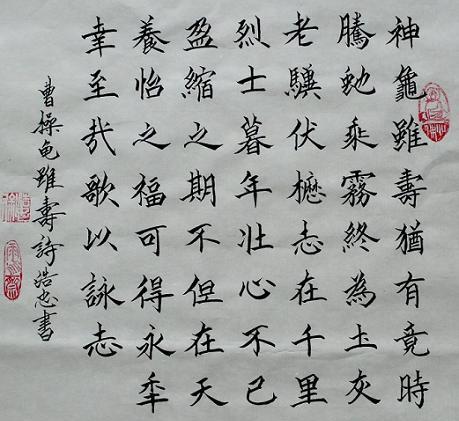 神龜雖壽猶有竟時
騰虵乘霧終為土灰
老驥伏櫪志在千里
烈士暮年壯心不已
盈縮之期不但在天
養怡之福可得永秊
幸至哉歌以詠志
曹操龟雖壽詩浩忠書